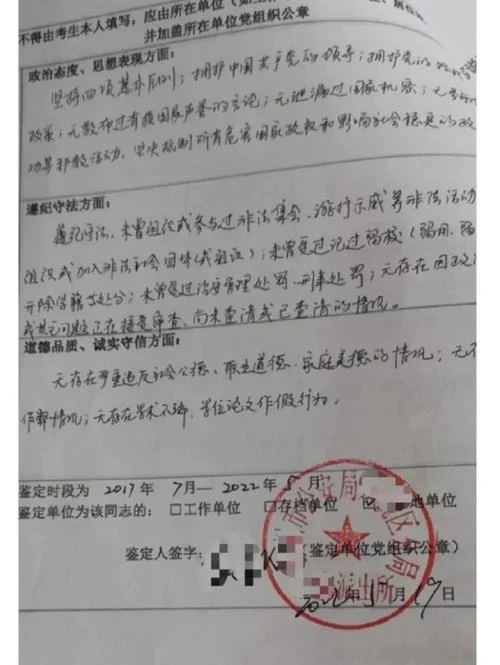 不得由考生本人填写，应由所在单位
并加盖所在单位党组织公章
政治态度、思想表现方面：
坚持四项基本原则；拥护中国共产党的领导；拥护党的
政策；无散布过有损国家声誉的言论；无泄漏过国家机密；无参
功等邪教活动，坚决抵制所有危害国家政权和影响社会稳定的政
遵纪守法方面：
遵纪守法，未曾组织或参与过非法集会、游行示威等非法活动
组织或加入非法社会团体（或组织）；未曾受过记过
开除学籍等处分；未曾受过治安管理处罚、刑事处罚；无存在因
或其它问题正在接受审查、尚未查清或已查清的情况。
道德品质、诚实守信方面：
无存在严重违反社会公德、职业道德、家庭美德的情况；无
作弊情况；无存在学术不端、学位论文作假行为。
鉴定时段为 2017年 7月—2022年 5月
鉴定单位为该同志的：□工作单位 □存档单位 地单位
鉴定人签字： （鉴定单位党组织公章）
市公安局 区 局
派出所
2022年5月19日